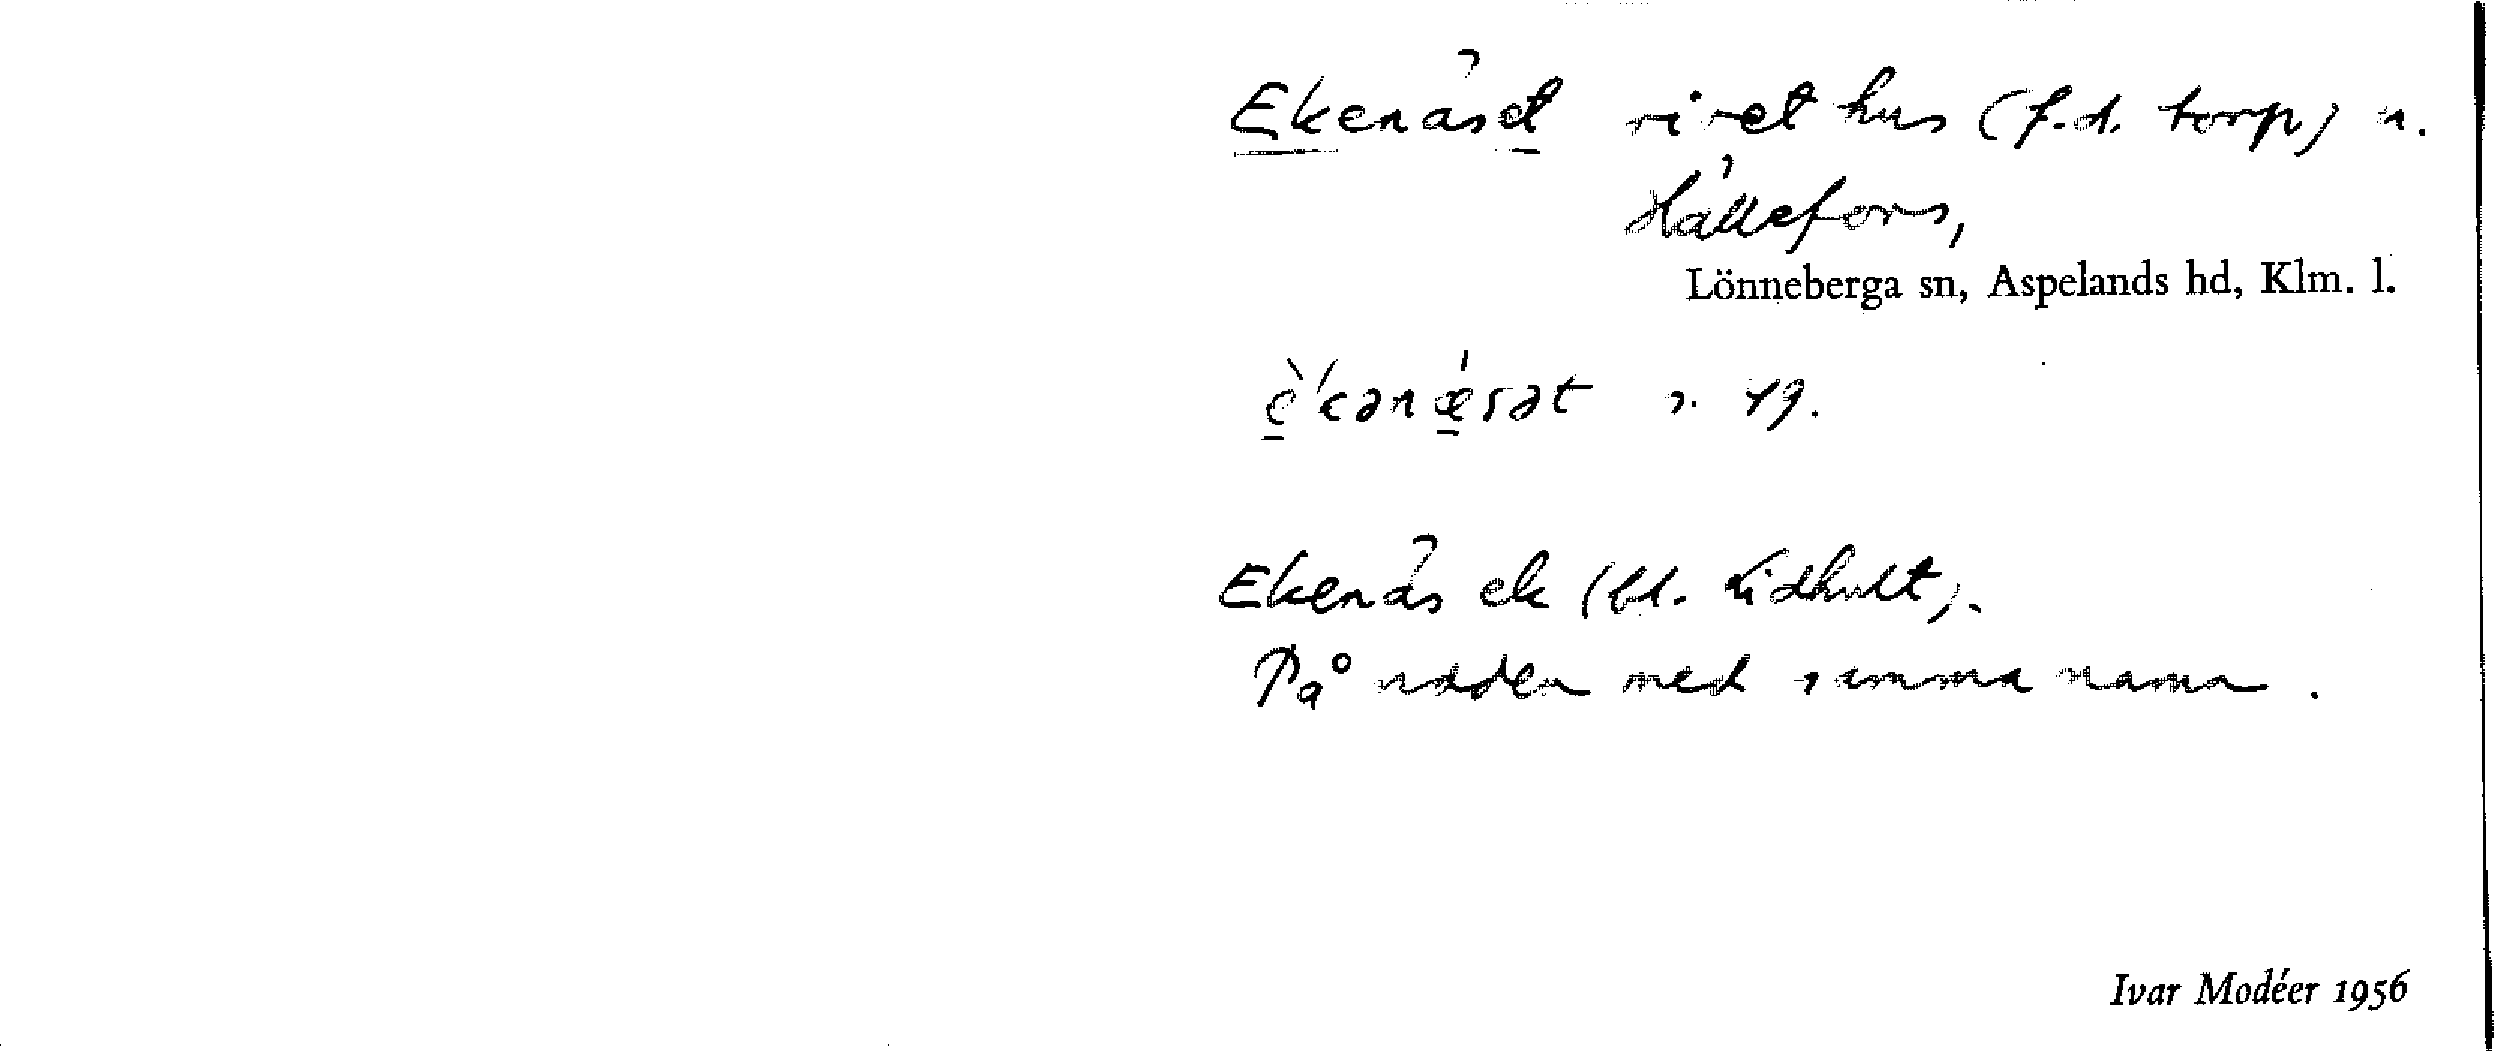 Ekenäset rivet hus (f.d. torp) u.
Hällefors,
Lönneberga sn, Aspelands hd, Klm. l.
Ekenäs ek (bl. Lidhult).
På udden med samma namn.
Ivar Modéer 1956